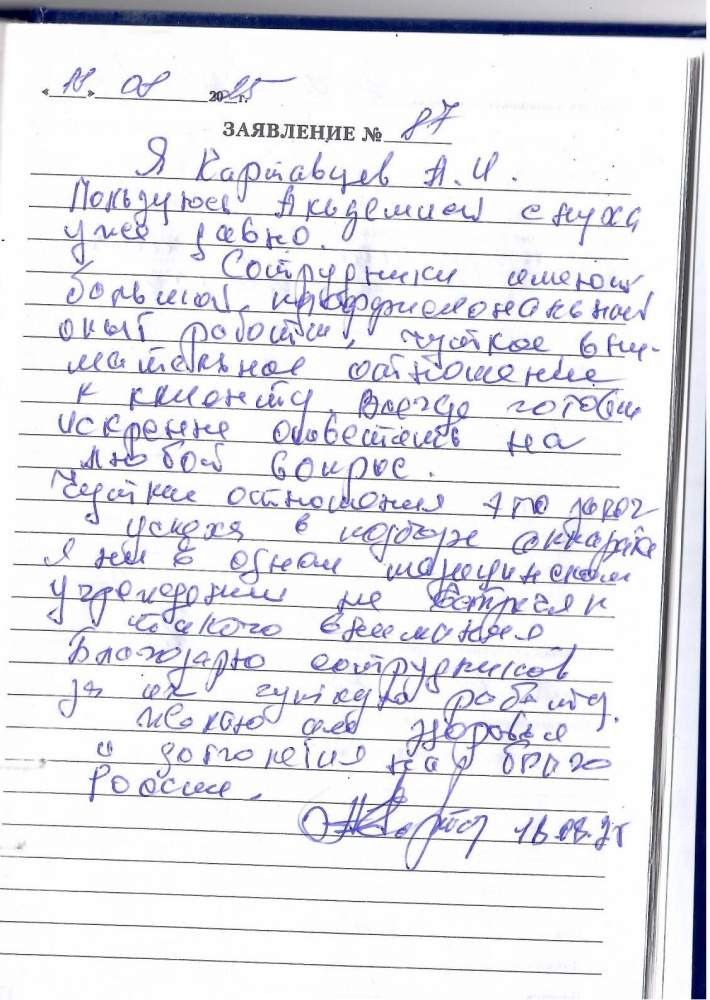 «18» 08 2025 г.
ЗАЯВЛЕНИЕ № 87
Я Картавцев А.И.
Пользуюсь Академией слуха
уже давно.
Сотрудники имеют
большой профессиональный
опыт работы, чуткое вни-
мательное отношение
к клиенту. Всегда готовы
искренне ответить на
любой вопрос.
Чуткие отношения это залог
успеха в подборе аппарата
Я ни в одном медицинском
учреждении не встречал
такого внимания
Благодарю сотрудников
за их чуткую работу.
Желаю им здоровья
и долголетия на благо
России.
18.08.25